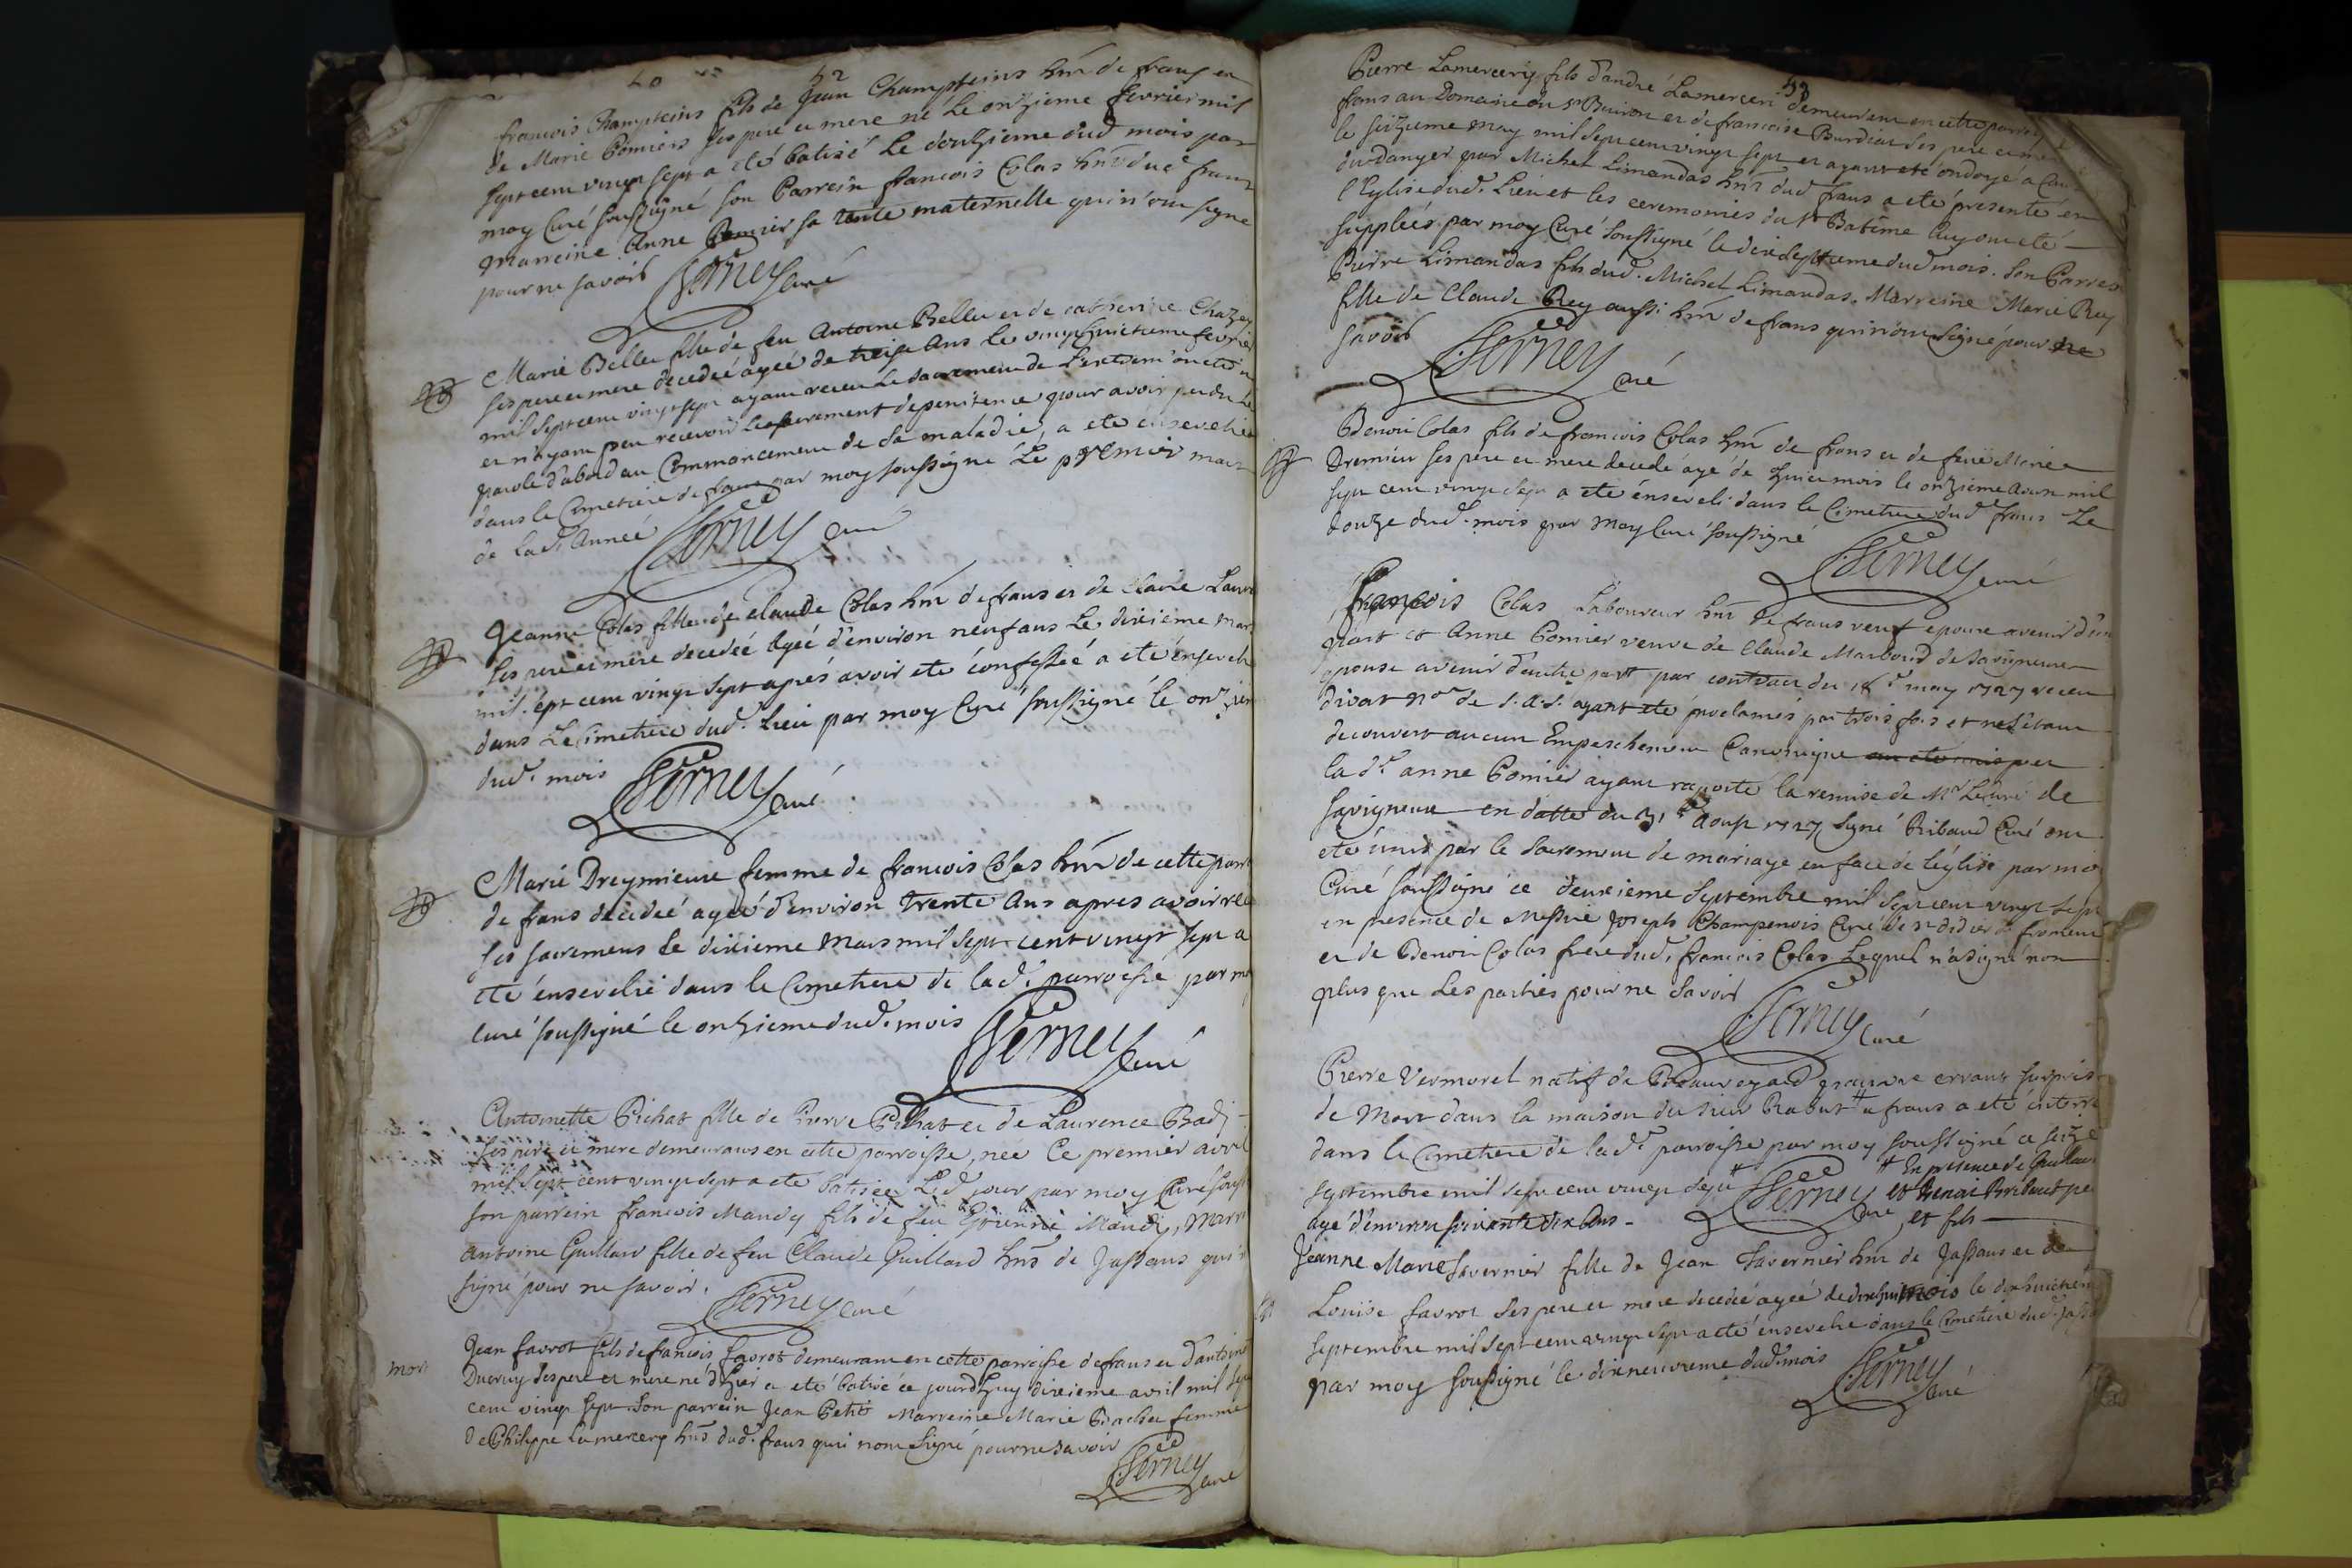 52
francois Champteins fils de Jean Champteins hnt de frans et
de Marie Pomiers ses pere et mere né Le onzieme fevrier mil
sept cent vingt sept a eté batisé Le douzieme dud mois par
moy Curé soussigné son Parrein francois Colas hnt dud frans
Marreine Anne Pomier sa tente maternelle qui n'ont signé
pour ne savoir Perney curé
Marie Bellet fille de feu Antoine Bellet et de catherine Chazey
ses pere et mere decedeé ageé de treize Ans le vingthuictieme fevrier
mil sept cent vingt sept ayant receu Le Sacrement de L'extrem'
et n'ayant peu recevoir Le sacrement de penitence pour avoir perdu La
parole d'abord au Commancement de Sa maladie, a eté ensevelie
dans le Cimetiere de frans par moy soussigné Le premier mars
de lad. Année Perney curé
Jeanne Colas fille de claude Colas hnt de frans et de claire
ses pere et mere decedeé Ageé d'environ neuf ans Le dixieme mars
mil sept cent vingt sept aprés avoir eté confesseé a eté ensevelie
dans Le Cimetiere dud. Lieu par moy Curé soussigné le onzieme
dud. mois Perney curé
Marie Dreymieuse femme de francois Colas hnt de cette parr
de frans decedeé ageé d'environ trente Ans apres avoir receu
ses sacremens le dixieme Mars mil sept cent vingt sept a
eté énsevelie dans le Cimetiere de lad. parroisse par moy
curé soussigné le onzieme dud. mois
Perney curé
Antoinette Pichat fille de Pierre Pichat et de Laurence Badi
ses pere et mere demeurans en cette parroisse, neé Ce premier avril
mil sept cent vingt sept a eté batiseé Led jour par moy Curé sous
son parrein francois Maudy fils de feu Etienne Maudy, Marr
Antoine Guillard fille de feu Claude Guillard hnt de Jassans qui
signé pour ne savoir. Perney curé
mort
Jean favrot fils de francois favrot demeurant en cette parroisse de frans et d'antoine
Ducruy ses pere et mere né d'hier a eté batisé ce jourd'huy dixieme avril mil sept
cent vingt sept son parrein Jean Petit Marreine Marie Brachet femme
de Philippe Lamercery hnt dud. frans qui nont signé pour ne savoir
Perney curé
53
Pierre Lamercery fils d'andré Lamercery demeurant en cette parroisse
frans au Domaine du sr Buiron et de francoise Burdiat ses pere et mere
le seizieme may mil sept cent vingt sept et ayant eté ondoyé a Cause
du danger par Michel Limandas hnt dud frans a eté presenté en
l'Eglise dud. Lieu et les ceremonies du st Batême luy ont eté
suppleés par moy Curé soussigné le dix septieme dud mois. Son Parrein
Pierre Limandas fils dud. Michel Limandas, Marreine Marie Rey
fille de Claude Rey aussi hnt de frans qui n'ont signé pour ne
savoir Perney curé
Benoit Colas fils de francois Colas hnt de frans et de feüe Marie
Dremieu ses pere et mere decedé agé de huict mois le onzieme Aoust mil
sept cent vingt sept a eté énseveli dans le Cimetiere dud frans Le
douze dud. mois par moy Curé soussigné
Perney curé
François Colas Laboureur hnt de frans veuf epoux avenir d'une
part et Anne Pomier veuve de Claude Marboud de Savigneux
epouse avenir d'autre part par contract du 18e may 1727 receu
Divat nore de ayant eté proclamés par trois fois et ne s'etant
decouvert aucun Empeschement Canonique ont eté unis par et
la dte anne Pomier ayant raporté la remise de Mr Le Curé de
Savigneux en datte du 31e Aoust 1727 Signé Ribaud Curé ont
eté unis par le Sacrement de mariage en face de l'église par moy
Curé soussigné ce deuxieme Septembre mil sept cent vingt sept
en presence de Messire Joseph Champenois Curé de st didier de froment
et de Benoit Colas frere dud. francois Colas Lequel n'a signé non
plus que Les parties pour ne savoir
Perney curé
Pierre Vermorel natif de Beauregard pauvre errant surpris
de Mort dans la maison du sieur Rabut a frans a eté enterré
dans le Cimetiere de lad. parroisse par moy soussigné ce seize
septembre mil sept cent vingt sept Perney curé # En presence de Guillau
agé d'environ soixante dix Ans - et Benoit Bribaut pe
et fils
Jeanne Marie Tavernier fille de Jean Tavernier hnt de Jassans et de
Louise favrot ses pere et mere decedeé ageé de dixhuit mois le dix huictiem
septembre mil sept cent vingt sept a eté ensevelie dans le Cimetiere dud. Jass
par moy soussigné le dix neuvieme dud mois Perney
curé